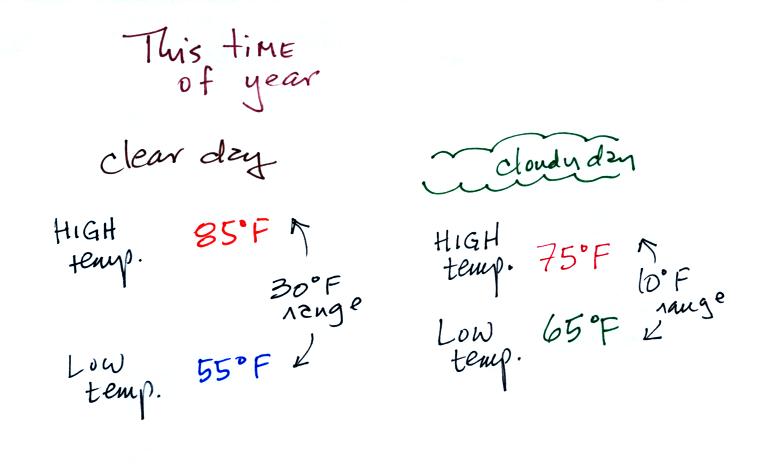 This time
of year
clear day
HIGH
temp.
85°F
30°F
range
LOW
temp.
55°F
cloudy day
HIGH
temp.
75°F
10°F
range
LOW
temp.
65°F